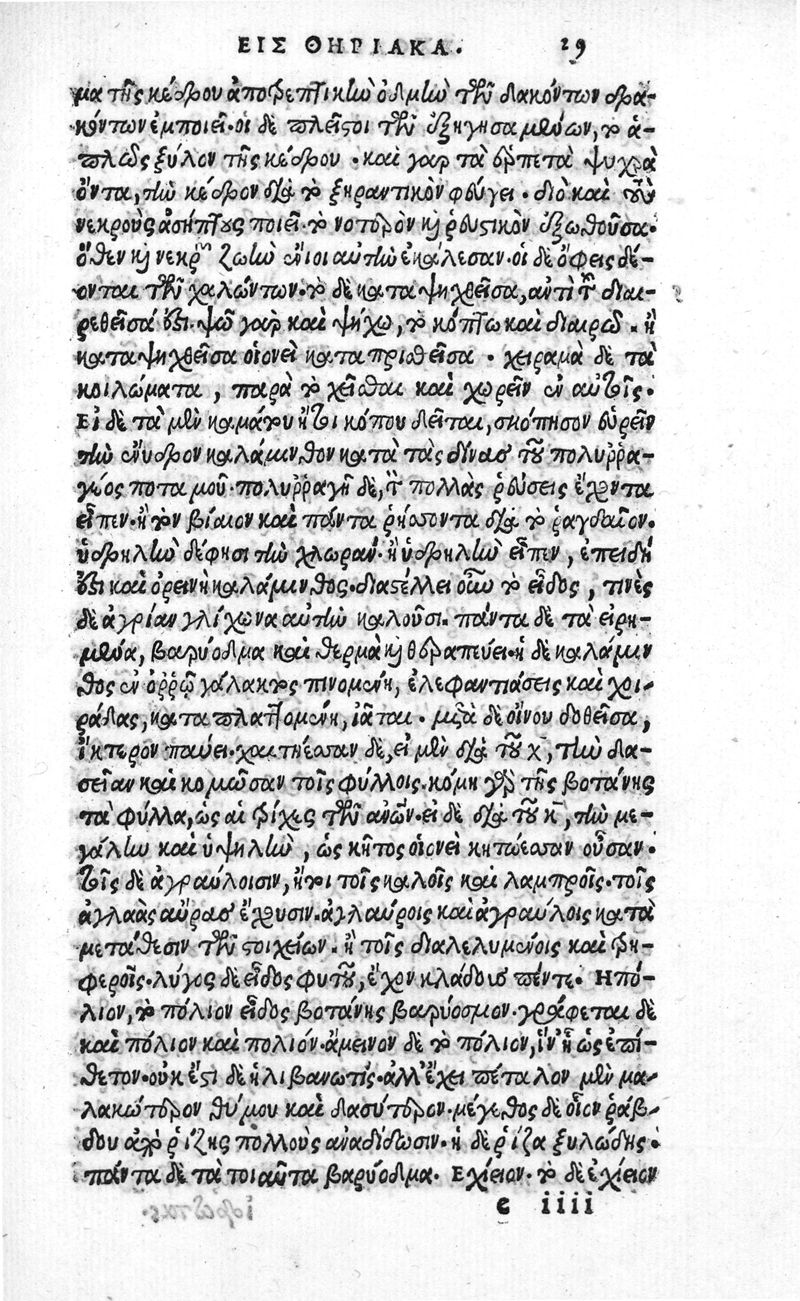 ΕΙΣ ΘΗΡΙΑΚΑ. 29
μα τῆς κέδρου ἀποτρεπτικὴν ὀδμὴν τῶν δακόντων δρα-
κόντων ἐμποιεῖ· οἱ δὲ πλεῖστοι τῶν ἐξηγησαμένων, τὸ ἁ-
πλῶς ξύλον τῆς κέδρου · καὶ γὰρ τὰ ἑρπετὰ ψυχρὰ
ὄντα, τὴν κέδρον διὰ τὸ ξηραντικὸν φεύγει · διὸ καὶ τοὺς
νεκροὺς ἀσήπτους ποιεῖ· τὸ νοτερὸν καὶ ῥευστικὸν ἐξωθοῦσα·
ὅθεν καὶ νεκρῶν ζωὴν ἔνιοι αὐτὴν ἐκάλεσαν· οἱ δὲ ὄφεις δέ-
ονται τῶν χαλώντων· τὸ δὲ καταψηχθεῖσα, αὐτὶ τοῦ διαι-
ρεθεῖσά ἐστι· ψῶ γὰρ καὶ ψήχω, τὸ κόπτω καὶ διαιρῶ · ἢ
καταψηχθεῖσα οἱονεὶ καταπρισθεῖσα · χειραμὰ δὲ τὰ
κοιλώματα , παρὰ τὸ χεῖσθαι καὶ χωρεῖν ἐν αὐτοῖς·
Εἰ δὲ τὰ μὲν καμάτου ἤτοι κόπου δεῖται, σκόπησον εὑρεῖν
τὴν ἔνυδρον καλάμινθον κατὰ τὰς δίνας τοῦ πολυῤῥα-
γέος ποταμοῦ· πολυῤῥαγῆ δὲ, τὸν πολλὰς ῥεύσεις ἔχοντα
εἶπεν· ἢ τὸν βίαιον καὶ πάντα ῥήσσοντα διὰ τὸ ῥαγδαῖον·
ὑδρηλὴν δέ φησι τὴν χλωράν· ἢ ὑδρηλὴν εἶπεν , ἐπειδή
ἐστι καὶ ὀρεινὴ καλάμινθος· διαστέλλει οὖν τὸ εἶδος , τινὲς
δὲ ἀγρίαν γλίχωνα αὐτὴν καλοῦσι· πάντα δὲ τὰ εἰρη-
μένα, βαρύοδμα καὶ θερμὰ καὶ θεραπεύει· ἡ δὲ καλάμιν
θος ἐν ὀῤῥῷ γάλακτος πινομένη, ἐλεφαντιάσεις καὶ χοι-
ράδας, καταπλαττομένη, ἰᾶται · μετὰ δὲ οἴνου δοθεῖσα ,
ἴκτερον παύει· χαιτήεσσαν δὲ, εἰ μὲν διὰ τοῦ χ̅, τὴν δα-
σεῖαν καὶ κομῶσαν τοῖς φύλλοις· κόμη γὰρ τῆς βοτάνης
τὰ φύλλα, ὡς αἱ τρίχες τῶν ἀνων· εἰ δὲ διὰ τοῦ κ̅ , τὴν με-
γάλην καὶ ὑψηλὴν , ὡς κῆτος οἱονεὶ κητώεσσαν οὖσαν·
τοῖς δὲ ἀγραύλοισιν, ἤτοι τοῖς καλοῖς καὶ λαμπροῖς· τοῖς
ἀγλαὰς αὔρας ἔχουσιν· ἀγλαύροις καὶ ἀγραύλοις κατὰ
μετάθεσιν τῶν στοιχείων · ἢ τοῖς διαλελυμένοις καὶ τρυ-
φεροῖς· λύγος δὲ εἶδος φυτοῦ, ἔχον κλάδους πέντε· Η πό-
λιον, τὸ πόλιον εἶδος βοτάνης βαρύοσμον· γράφεται δὲ
καὶ πόλιον καὶ πολιόν· ἄμεινον δὲ τὸ πόλιον, ἵν' ᾖ ὡς ἐπί-
θετον· οὐκ ἔστι δὲ ἡ λιβανωτίς· ἀλλ' ἔχει πέταλον μὲν μα-
λακώτερον θύμου καὶ δασύτερον· μέγεθος δὲ οἷον ῥάβ-
δου ἀπὸ ῥίζης πολλοὺς ἀναδίδωσιν· ἡ δὲ ῥίζα ξυλώδης ·
πάντα δὲ τὰ τοιαῦτα βαρύοδμα· Εχίειον· τὸ δὲ ἐχίειον
e iiii